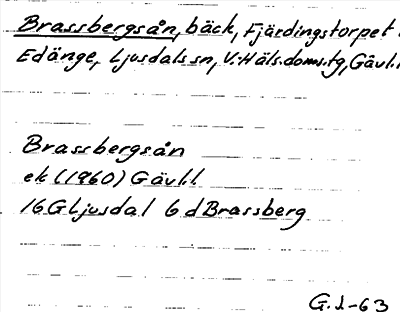 Brassbergsån, bäck, Fjärdingstorpet
Edänge, Ljusdals sn, V. Häls. doms.tg, Gävl.
Brassbergsån
ek (1960) Gävl.l
16G Ljusdal 6 d Brassberg
G.J.-63